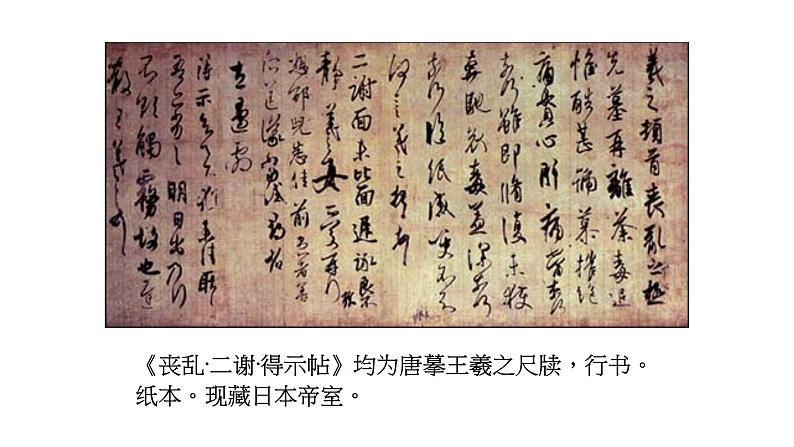 羲之頓首喪亂之極
先墓再離荼毒追
惟酷甚號慕摧絕
痛貫心肝痛當奈何
奈何雖即脩復未獲
奔馳哀毒益深奈何
奈何臨紙感哽不知
何言羲之頓首
二謝面未比面遲詠良
靜羲之女愛再拜
想邵兒悉佳前患者善
左邊劇
得示知足下猶未佳耿
吾亦劣劣明日出乃行
不欲觸霧故也遲
散王羲之頓首
《丧乱·二谢·得示帖》均为唐摹王羲之尺牍，行书。
纸本。现藏日本帝室。